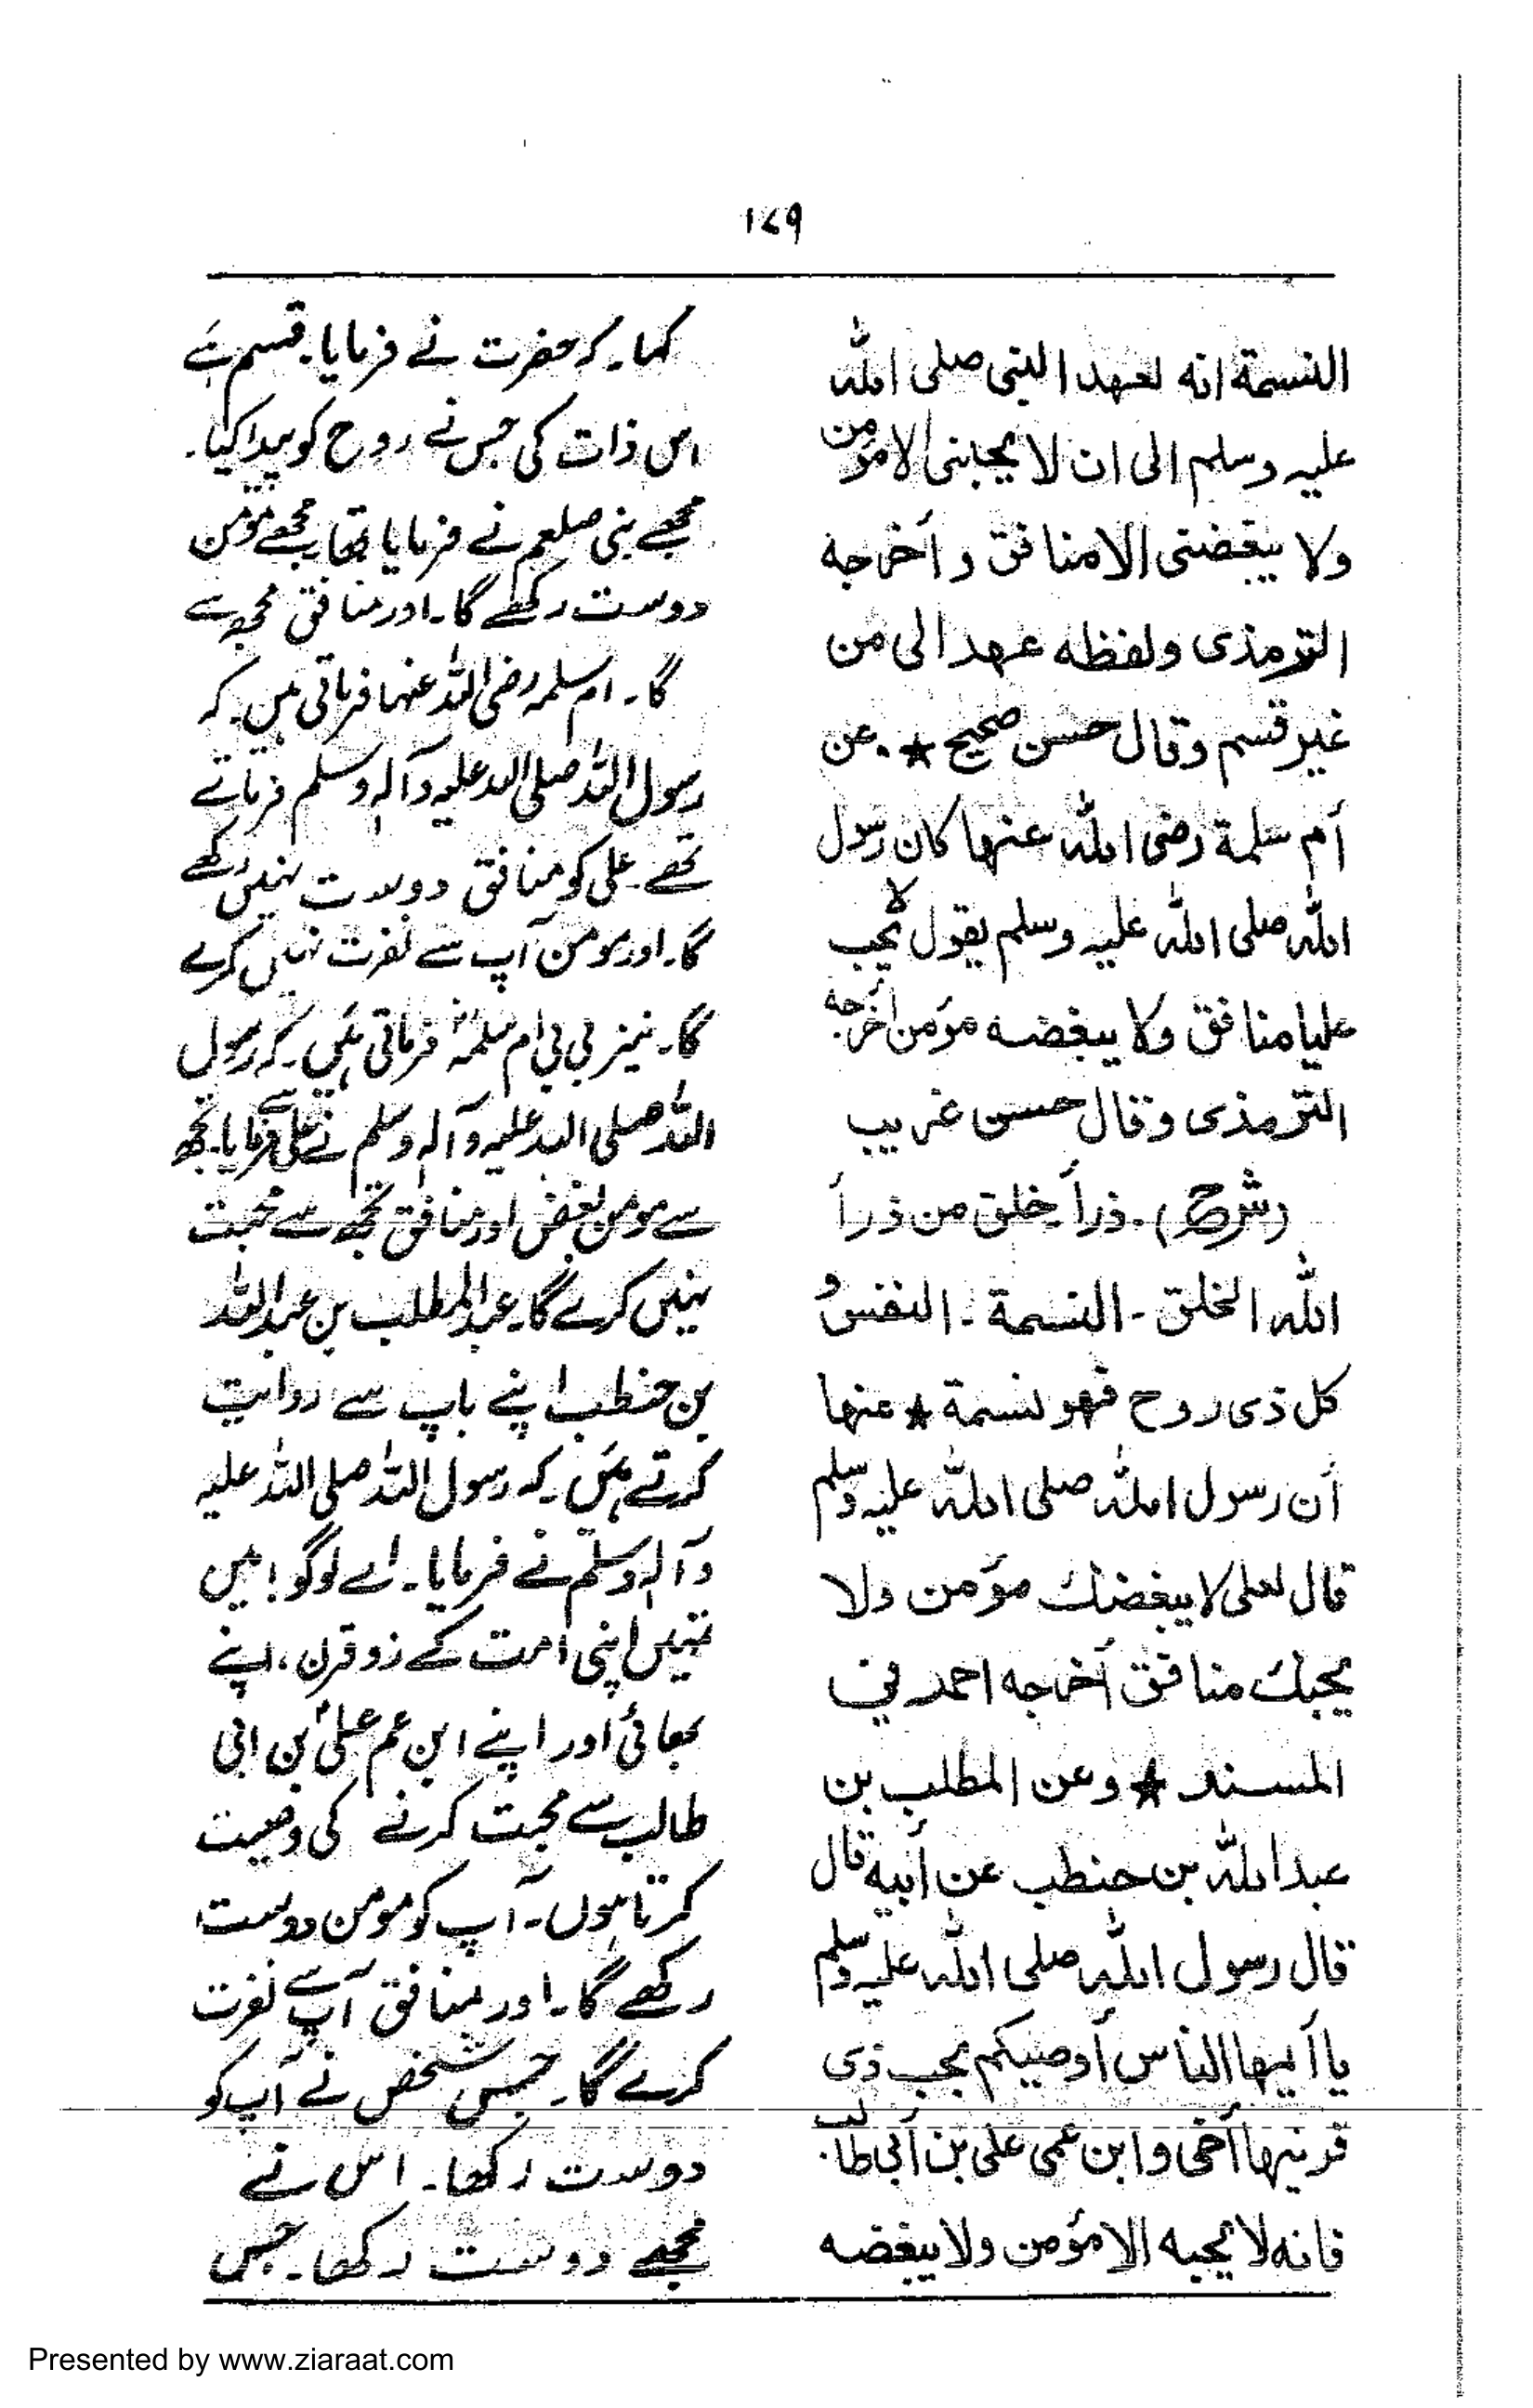 ١٧٩
النسمة انه لعهد النبى صلى الله
عليه وسلم الى ان لا يحبنى الا مؤمن
ولا يبغضنى الا منافق وأخرجه
الترمذى ولفظه عهد الى من
غير قسم وقال حسن صحيح ★ عن
أم سلمة رضى الله عنها كان رسول
الله صلى الله عليه وسلم يقول لا يحب
عليا منافق ولا يبغضه مؤمن أخرجه
الترمذى وقال حسن غريب
(شرح) ۔ ذرأ خلق من ذرأ
الله الخلق ۔ النسمة ۔ النفس و
كل ذى روح فهو نسمة ★ عنها
أن رسول الله صلى الله عليه وسلم
قال لعلى لا يبغضك مؤمن ولا
يحبك منافق أخرجه احمد في
المسند ★ وعن المطلب بن
عبد الله بن حنطب عن أبيه قال
قال رسول الله صلى الله عليه وسلم
يا أيها الناس أوصيكم بحب ذى
قرنيها أخى وابن عمى على بن أبى طالب
فانه لا يحبه الا مؤمن ولا يبغضه
کہا۔ کہ حضرت نے فرمایا۔ قسم ہے
اس ذات کی جس نے روح کو پیدا کیا۔
مجھے نبی صلعم نے فرمایا تھا۔ مجھے مؤمن
دوست رکھے گا۔ اور منافق مجھ سے
گا۔ ام سلمہ رضی اللہ عنہا فرماتی ہیں۔ کہ
رسول اللہ صلی اللہ علیہ وآلہ وسلم فرماتے
تھے۔ علی کو منافق دوست نہیں رکھے
گا۔ اور مومن آپ سے نفرت نہیں کرے
گا۔ نیز بی بی ام سلمہؓ فرماتی ہیں۔ کہ رسول
اللہ صلی اللہ علیہ وآلہ وسلم نے علی سے فرمایا۔ تجھ
سے مومن بغض اور منافق تجھ سے محبت
نہیں کرے گا۔ عبدالمطلب بن عبداللہ
بن حنطب اپنے باپ سے روایت
کرتے ہیں۔ کہ رسول اللہ صلی اللہ علیہ
وآلہ وسلم نے فرمایا۔ اے لوگو! میں
تمہیں اپنی امت کے ذوقرن، اپنے
بھائی اور اپنے ابن عم علیؑ بن ابی
طالب سے محبت کرنے کی وصیت
کرتا ہوں۔ آپ کو مومن دوست
رکھے گا۔ اور منافق آپ سے نفرت
کرے گا۔ جس شخص نے آپ کو
دوست رکھا۔ اس نے
مجھے دوست رکھا۔ جس
Presented by www.ziaraat.com